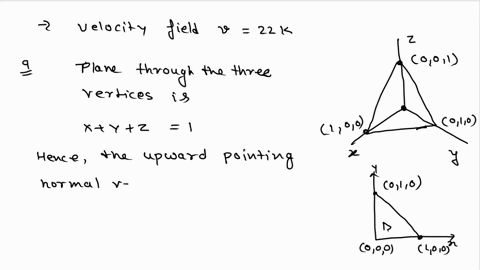 → velocity field v = 22K
a Plane through the three
vertices is
x+y+z = 1
Hence, the upward pointing
normal v-
z
(0,0,1)
(1,0,0)
(0,1,0)
x
y
y
(0,1,0)
D
(0,0,0)
(1,0,0)
x